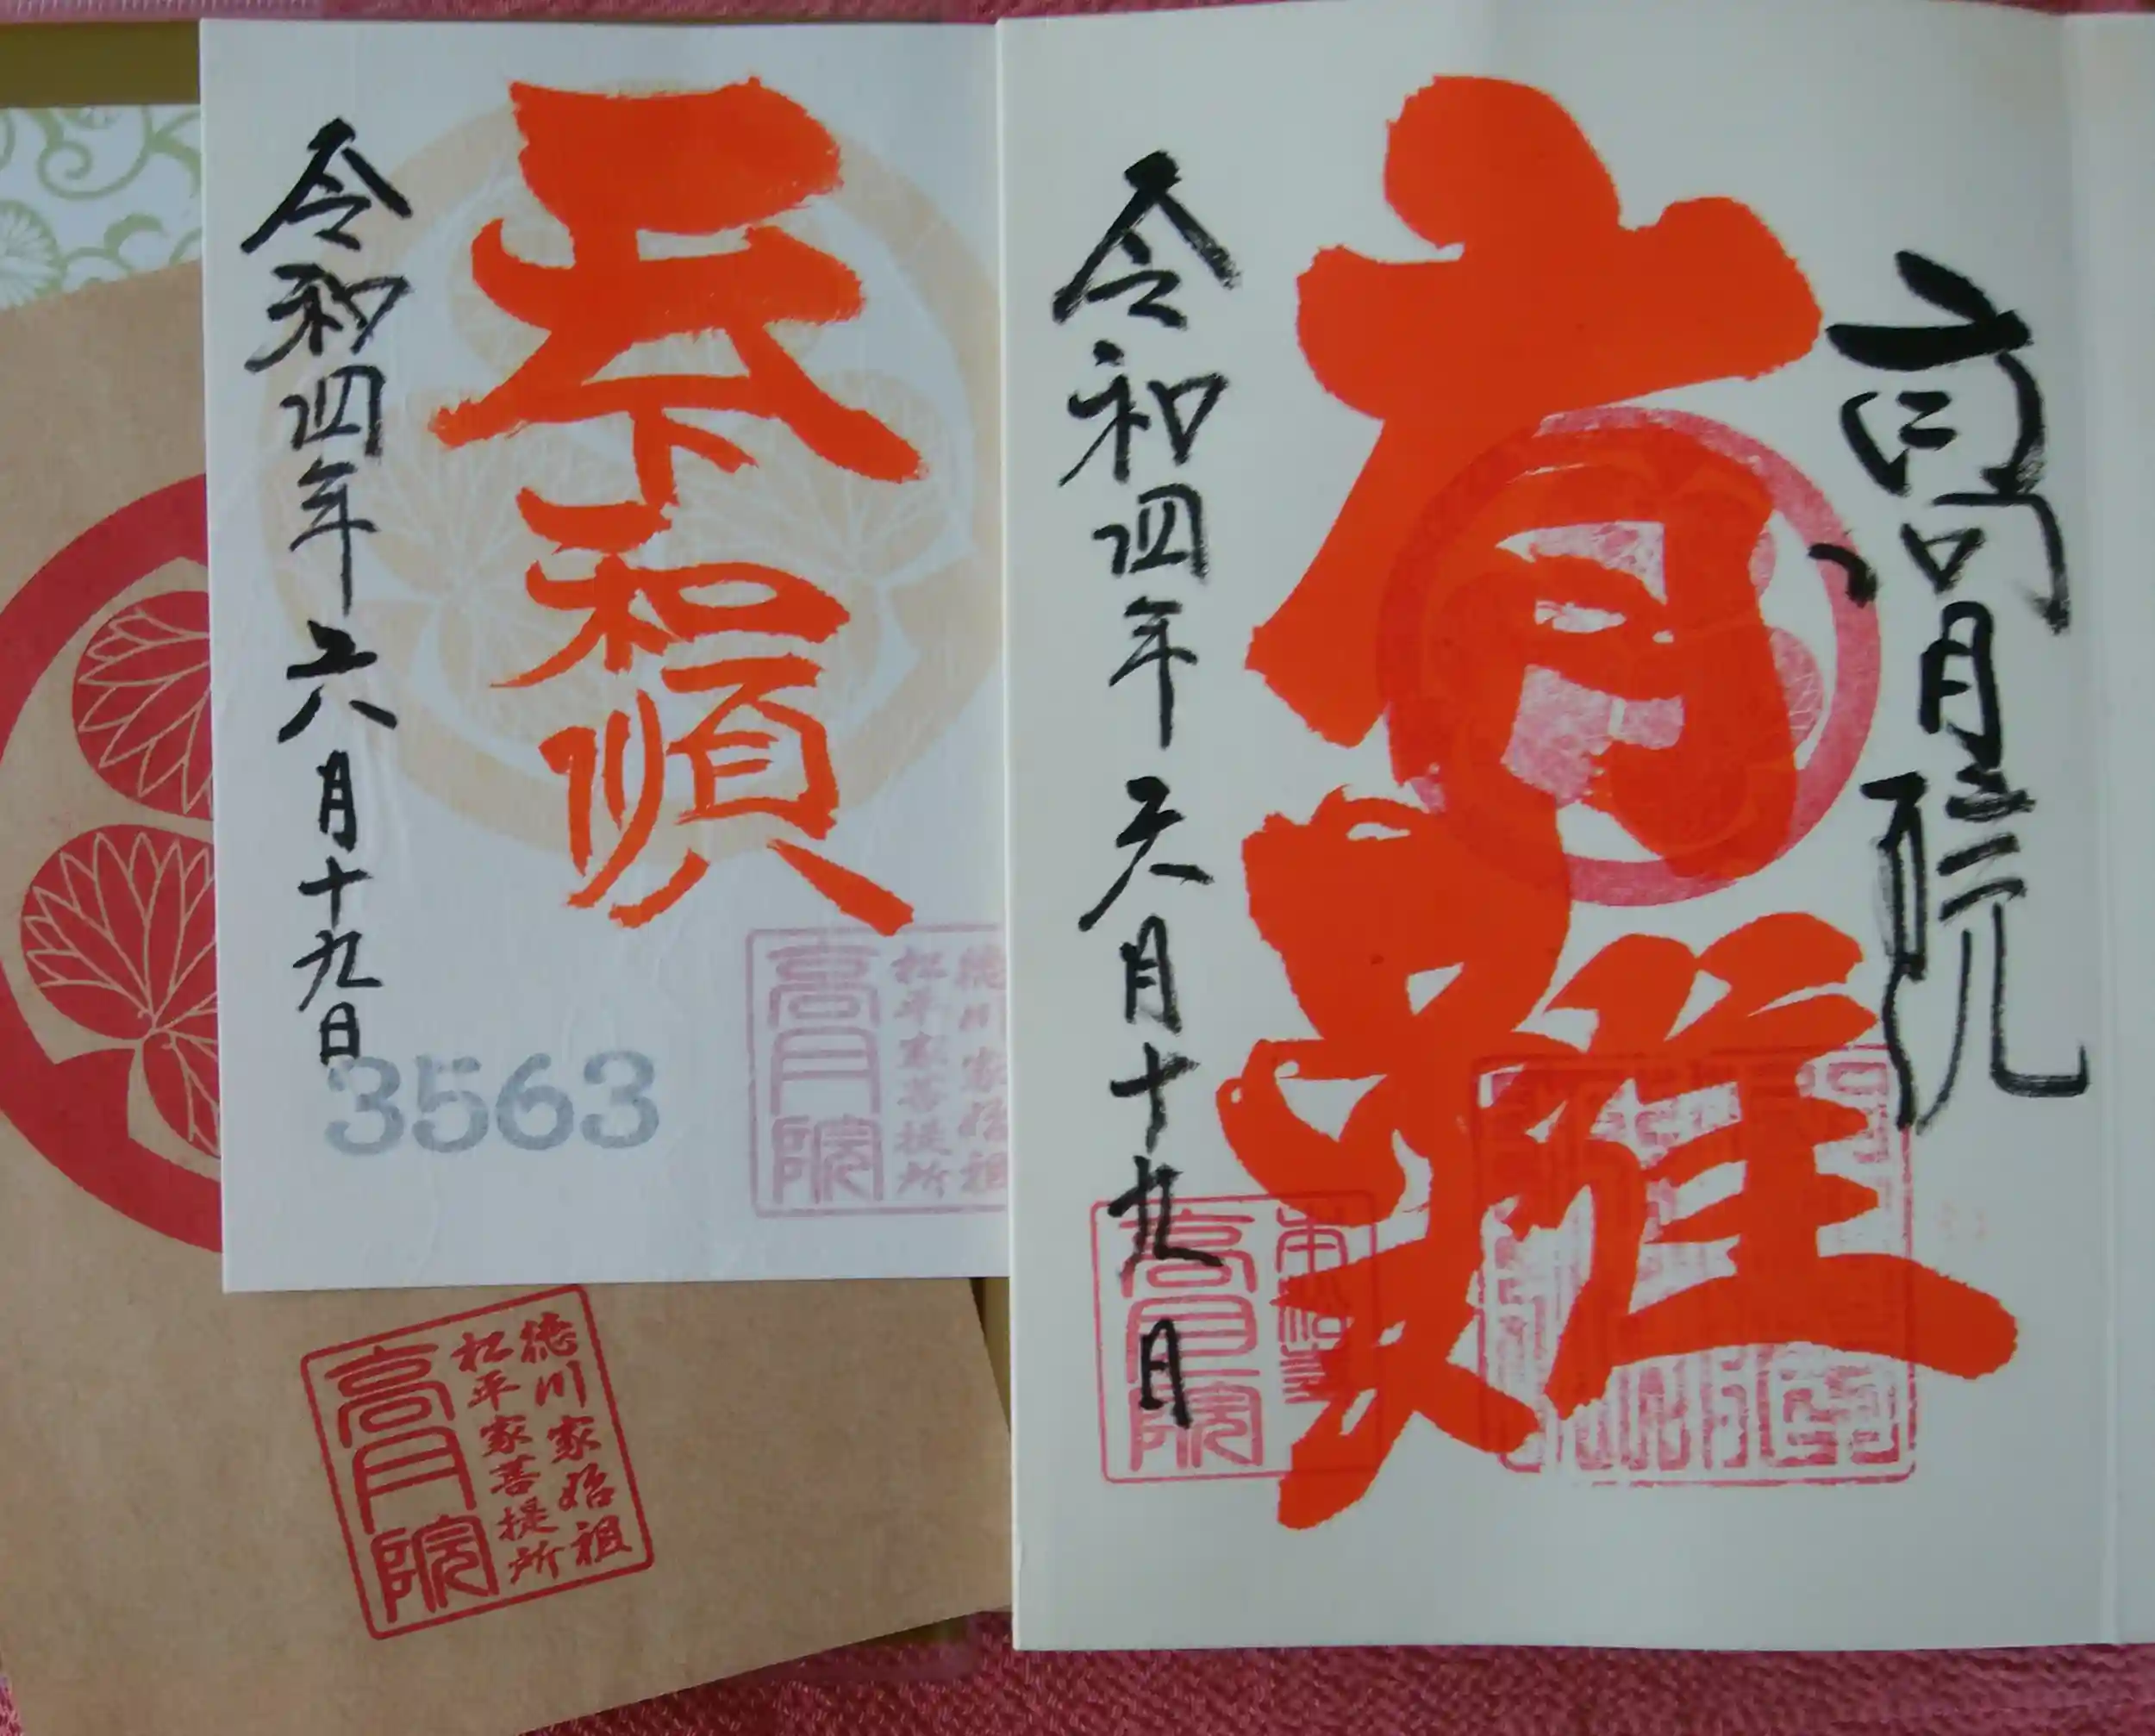 高月院
有難
令和四年六月十九日
高月院
天下和順
令和四年六月十九日
3563
徳川家始祖
松平家菩提所
高月院
徳川家始祖
松平家菩提所
高月院